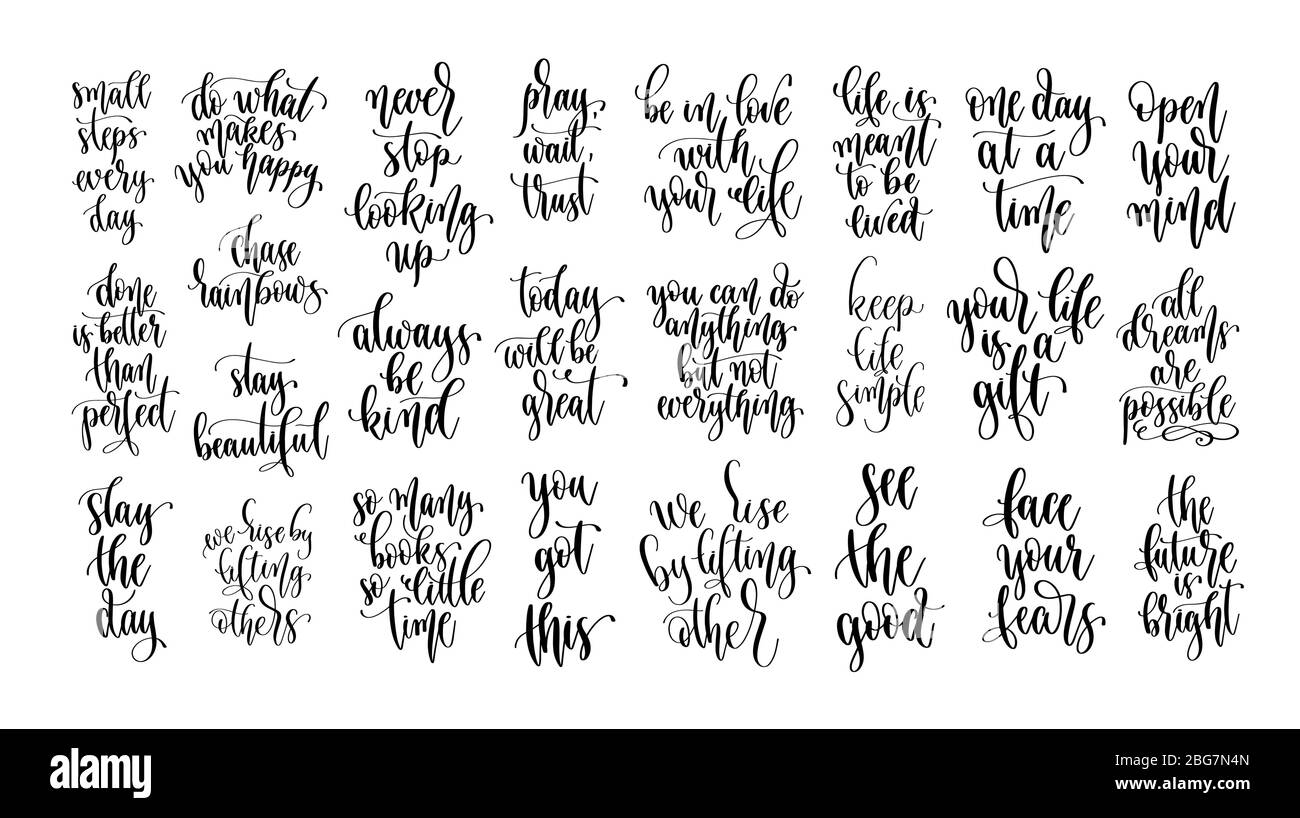 small
steps
every
day
do what
makes
you happy
never
stop
looking
up
pray,
wait,
trust
be in love
with
your life
life is
meant
to be
lived
one day
at a
time
open
your
mind
chase
rainbows
done
is better
than
perfect
stay
beautiful
always
be
kind
today
will be
great
you can do
anything
but not
everything
keep
life
simple
your life
is a
gift
all
dreams
are
possible
slay
the
day
we rise by
lifting
others
so many
books
so little
time
you
got
this
we rise
by lifting
other
see
the
good
face
your
fears
the
future
is
bright
alamy
alamy
Image ID: 2BG7N4N
www.alamy.com